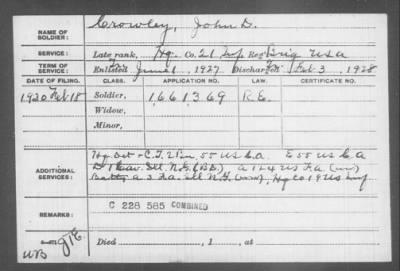 NAME OF SOLDIER: Crowley, John D.
SERVICE: Late rank, Hq. Co. 21 Inf Reg't USA
TERM OF SERVICE: Enlisted June 1, 1927 Discharged Feb 3, 1928
DATE OF FILING. CLASS. APPLICATION NO. LAW. CERTIFICATE NO.
1920 Feb 18 Soldier, 1,661,369 R.E.
Widow,
Minor,
ADDITIONAL SERVICES: Hq Det + C.T. 2 Bn, 55 US C.A. E 55 US C A
D 1 Cav. Ill. N.G. A 124 US F.A.
Batty A 3 F.A. Ill N.G. Hq Co 19 US Inf
REMARKS: C 228 585 COMBINED
Died , 1 , at